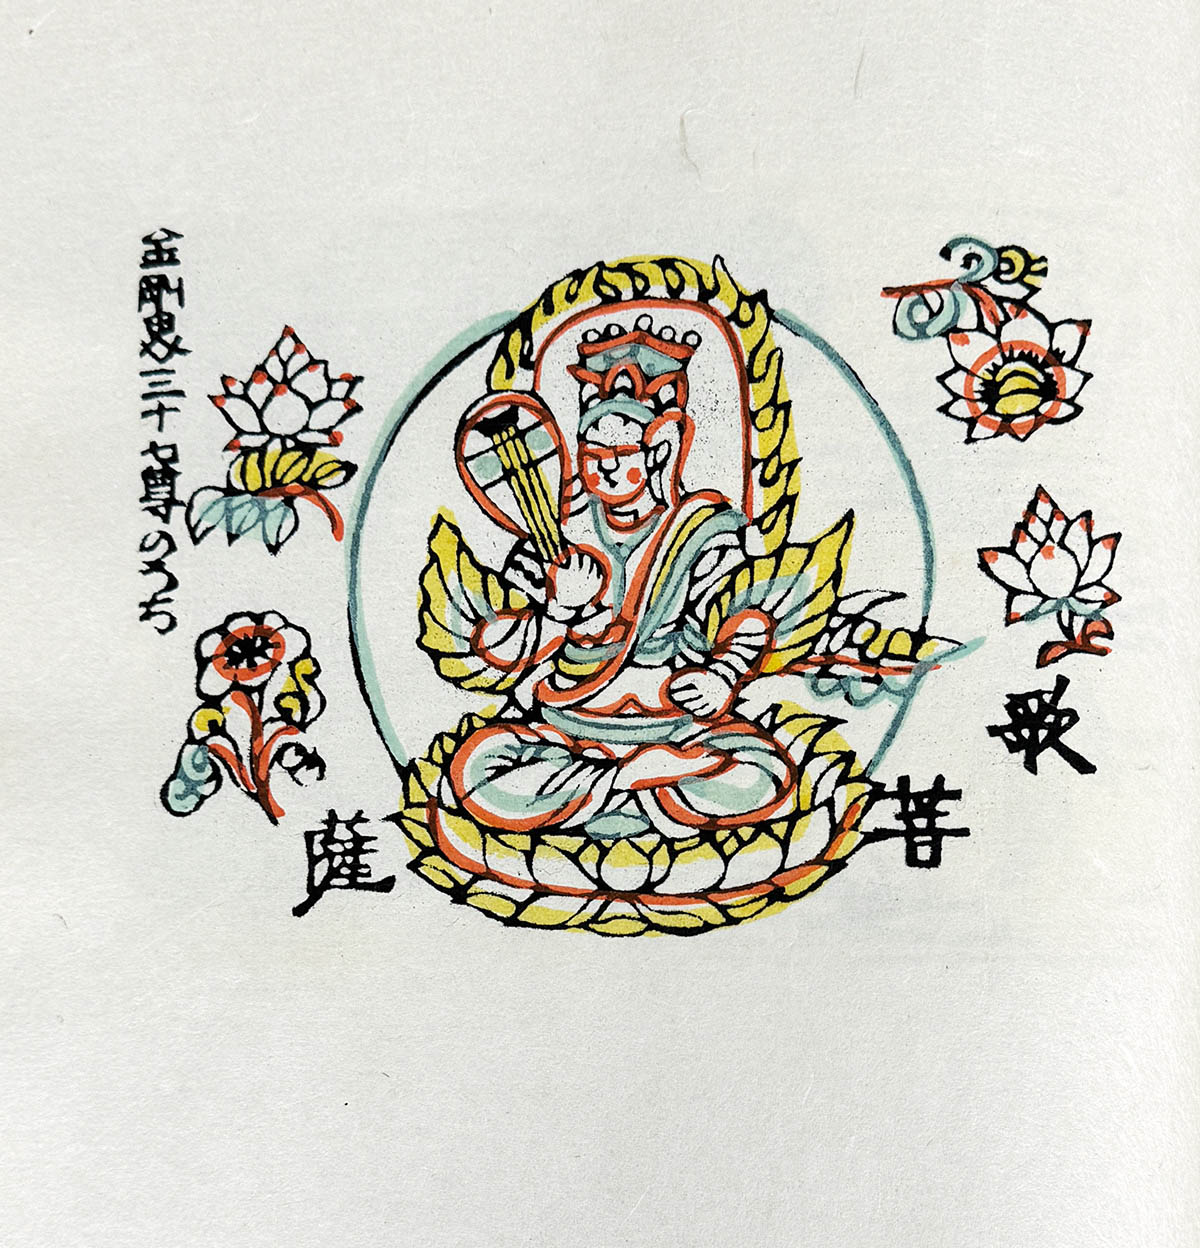 歌菩薩
金剛界三十七尊のうち